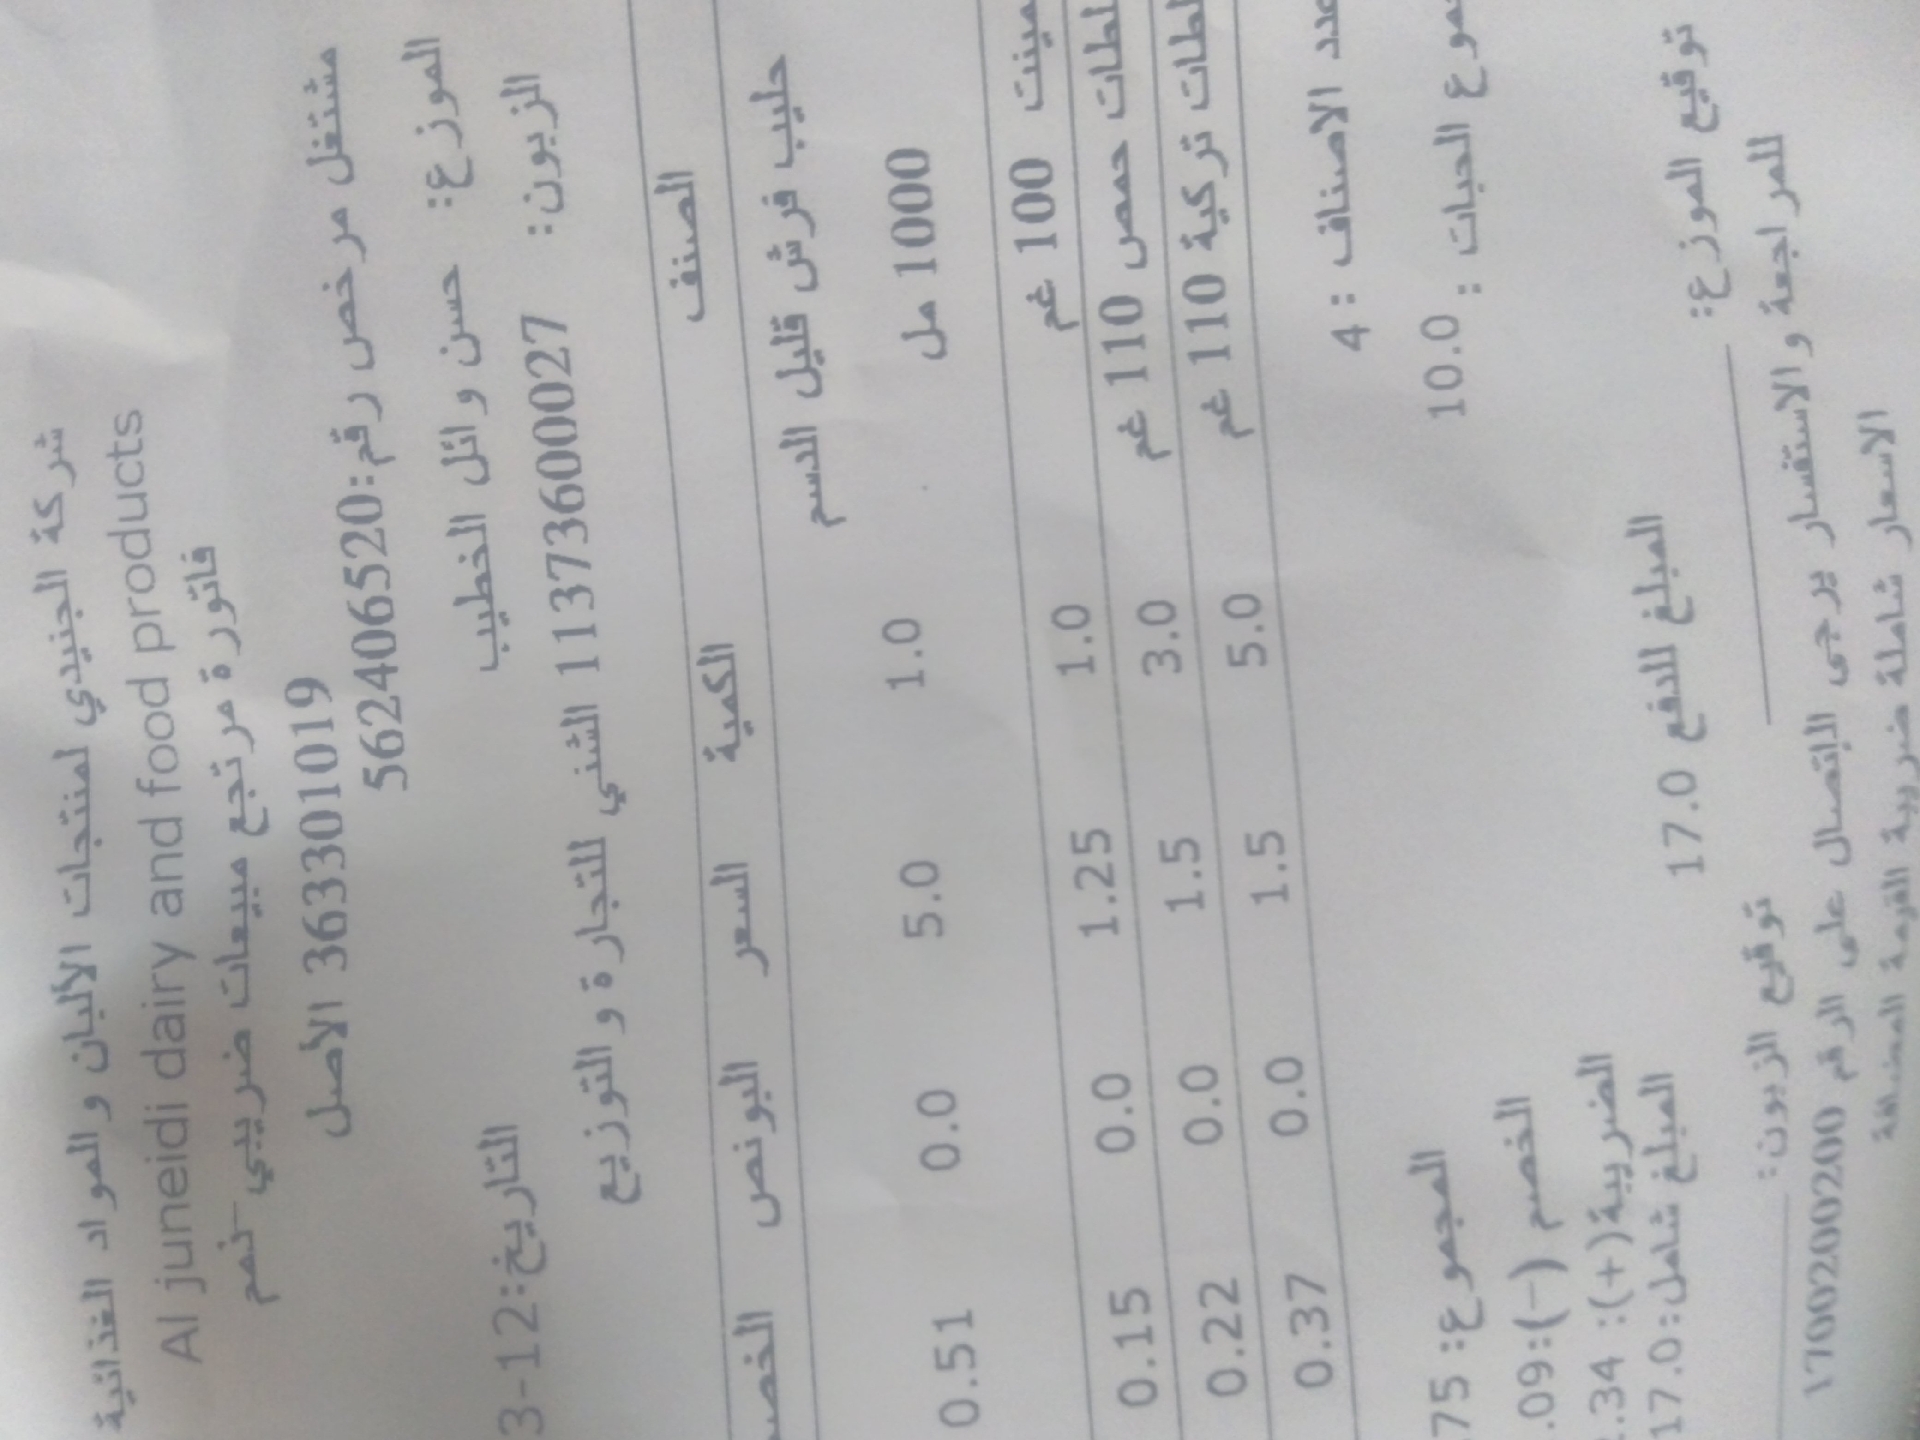 شركة الجنيدي لمنتجات الألبان و المواد الغذائية
Al juneidi dairy and food products
فاتورة مرتجع مبيعات ضريبي-نمم
363301019 الأصل
مشتغل مرخص رقم:562406520
الموزع: حسن وائل الخطيب
التاريخ:12-3
الزبون: 1137360027 الشني للتجارة والتوزيع
الصنف الكمية السعر البونص الخصم
حليب فرش قليل الدسم 1000 مل 1.0 5.0 0.0 0.51
مينت 100 غم 1.0 1.25 0.0 0.15
لطات حمص 110 غم 3.0 1.5 0.0 0.22
لطات تركية 110 غم 5.0 1.5 0.0 0.37
عدد الاصناف : 4
موع الحبات : 10.0
المجموع: 75
الخصم (-):09.
الضريبة(+): 34.
المبلغ شامل:17.0
المبلغ للدفع 17.0
توقيع الموزع:
توقيع الزبون:
للمراجعة والاستفسار يرجى الإتصال على الرقم ١٧٠٠٢٠٠٢٠٠
الاسعار شاملة ضريبة القيمة المضافة